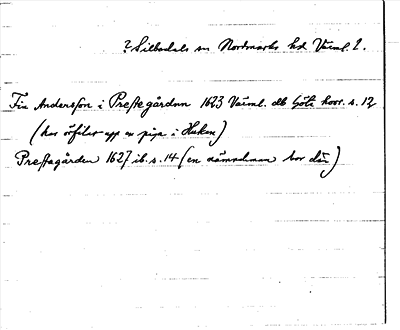 ? Silbodals sn Nordmarks hd Värml. l.
Fin Andersson i Prestegården 1623 Värml. db Göta hovr. s. 12
(har örfilat upp en piga i Huken)
Prestgården 1627 ib. s. 14 (en nämndeman bor där)